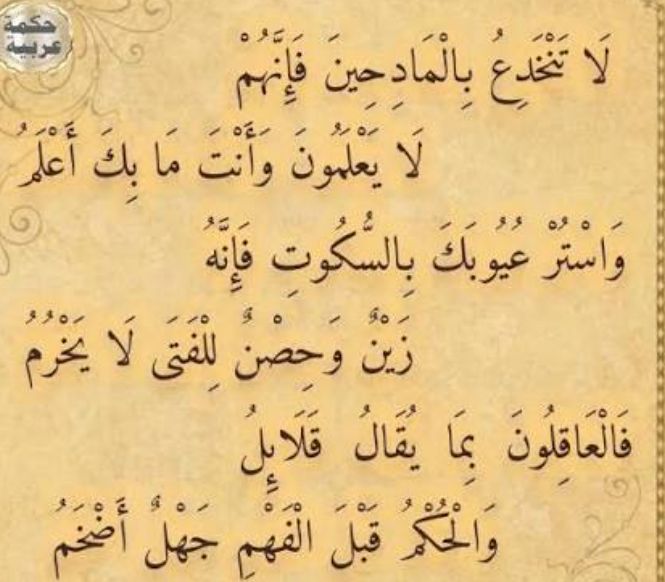 حكمة
عربية
لَا تَنْخَدِعُ بِالْمَادِحِينَ فَإِنَّهُمْ
لَا يَعْلَمُونَ وَأَنْتَ مَا بِكَ أَعْلَمُ
وَاسْتُرْ عُيُوبَكَ بِالسُّكُوتِ فَإِنَّهُ
زَيْنٌ وَحِصْنٌ لِلْفَتَى لَا يَخْرُمُ
فَالْعَاقِلُونَ بِمَا يُقَالُ قَلَايِلُ
وَالْحُكْمُ قَبْلَ الْفَهْمِ جَهْلٌ أَضْخَمُ